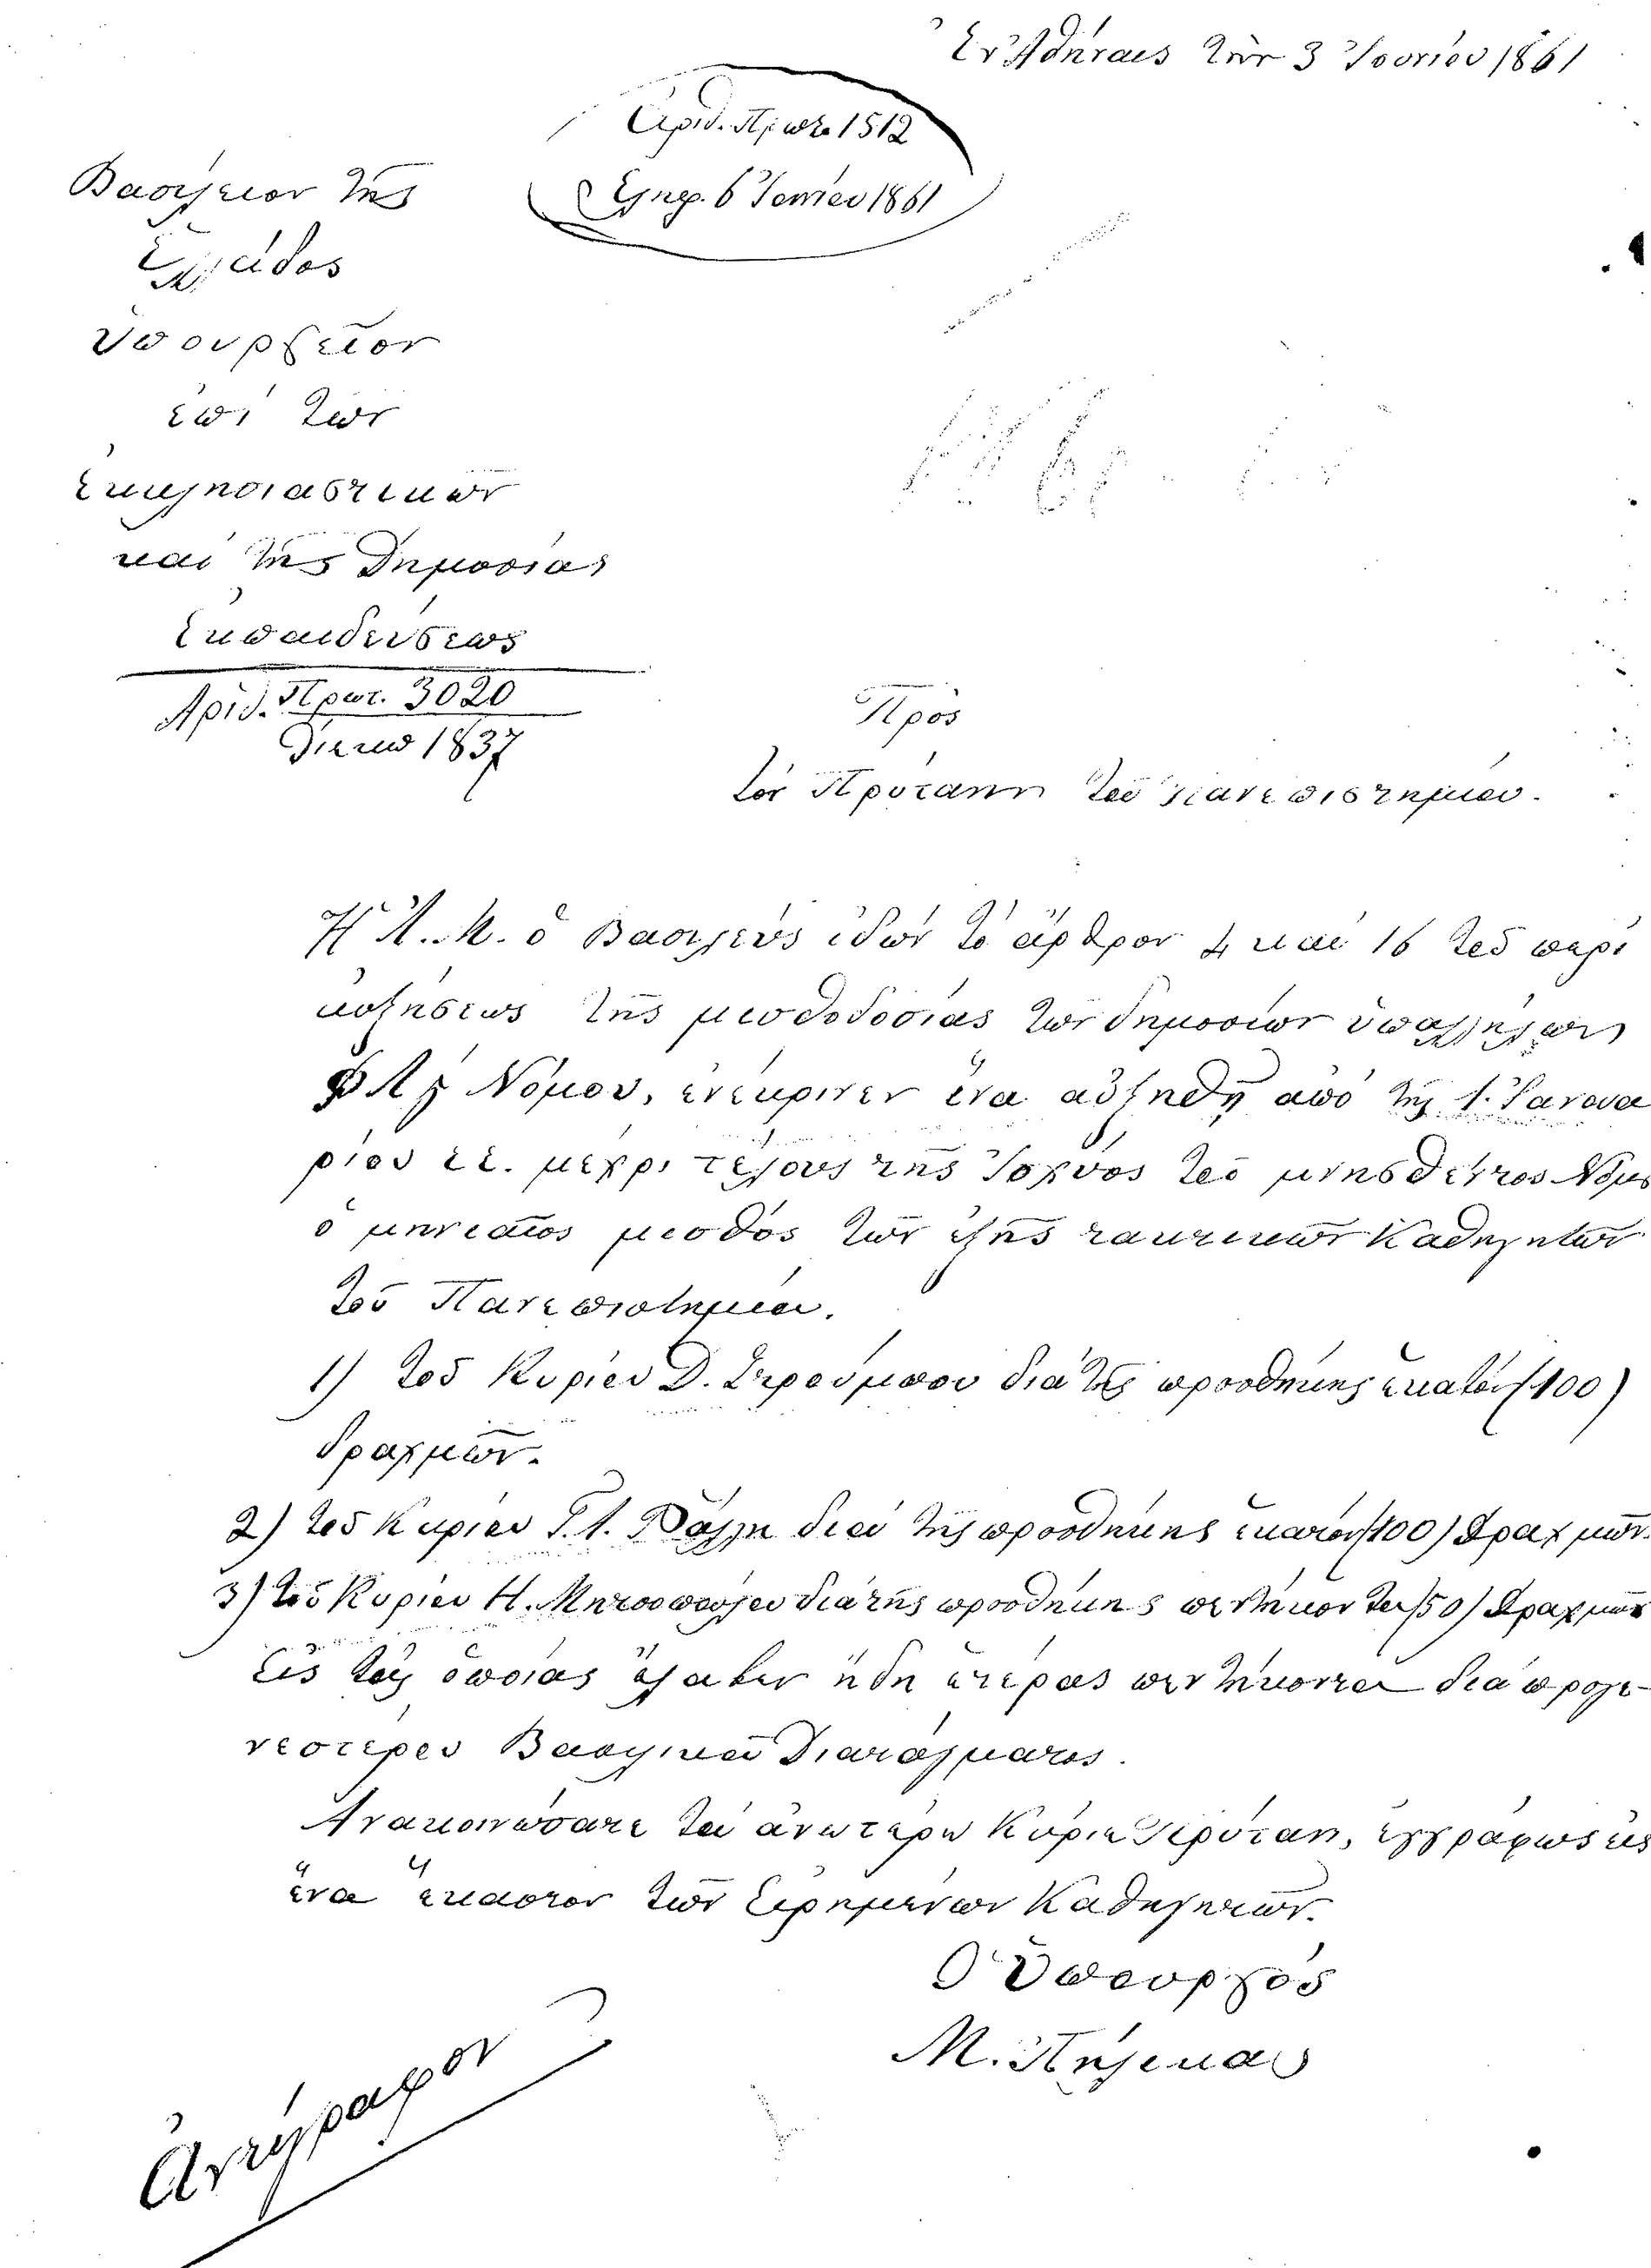 Ἐν Ἀθήναις τὴν 3 Ἰουνίου 1861
Ἀριθ. Πρωτ. 1512
Ἐλήφ. 6 Ἰουνίου 1861
Βασίλειον τῆς
Ἑλλάδος
Ὑπουργεῖον
ἐπὶ τῶν
Ἐκκλησιαστικῶν
καὶ τῆς Δημοσίας
Ἐκπαιδεύσεως
Ἀριθ. Πρωτ. 3020
Διεκπ 1837
Πρὸς
τὸν Πρύτανιν τοῦ Πανεπιστημίου.
Ἡ Α. Μ. ὁ Βασιλεὺς ἰδὼν τὸ ἄρθρον 4 καὶ 16 τοῦ περὶ
αὐξήσεως τῆς μισθοδοσίας τῶν δημοσίων ὑπαλλήλων
ΦΛζ Νόμου, ἐνέκρινεν ἵνα αὐξηθῇ ἀπὸ τῆς 1. Ἰανουα
ρίου ἐ.ἐ. μέχρι τέλους τῆς ἰσχύος τοῦ μνησθέντος Νόμου
ὁ μηνιαῖος μισθὸς τῶν ἑξῆς τακτικῶν Καθηγητῶν
τοῦ Πανεπιστημίου.
1) τοῦ Κυρίου Δ. Στρούμπου διὰ τῆς προσθήκης ἑκατὸν (100)
δραχμῶν.
2) τοῦ Κυρίου Γ. Α. Ῥάλλη διὰ τῆς προσθήκης ἑκατὸν (100) δραχμῶν.
3) τοῦ Κυρίου Η. Μητσοπούλου διὰ τῆς προσθήκης πεντήκοντα (50) δραχμῶν
εἰς τὰς ὁποίας ἔλαβεν ἤδη ἑτέρας πεντήκοντα διὰ προγε-
νεστέρου Βασιλικοῦ Διατάγματος.
Ἀνακοινώσατε τὰ ἀνωτέρω Κύριε Πρύτανι, ἐγγράφως εἰς
ἕνα ἕκαστον τῶν εἰρημένων Καθηγητῶν.
Ὁ Ὑπουργὸς
Μ. Ποτλῆς
Ἀντίγραφον